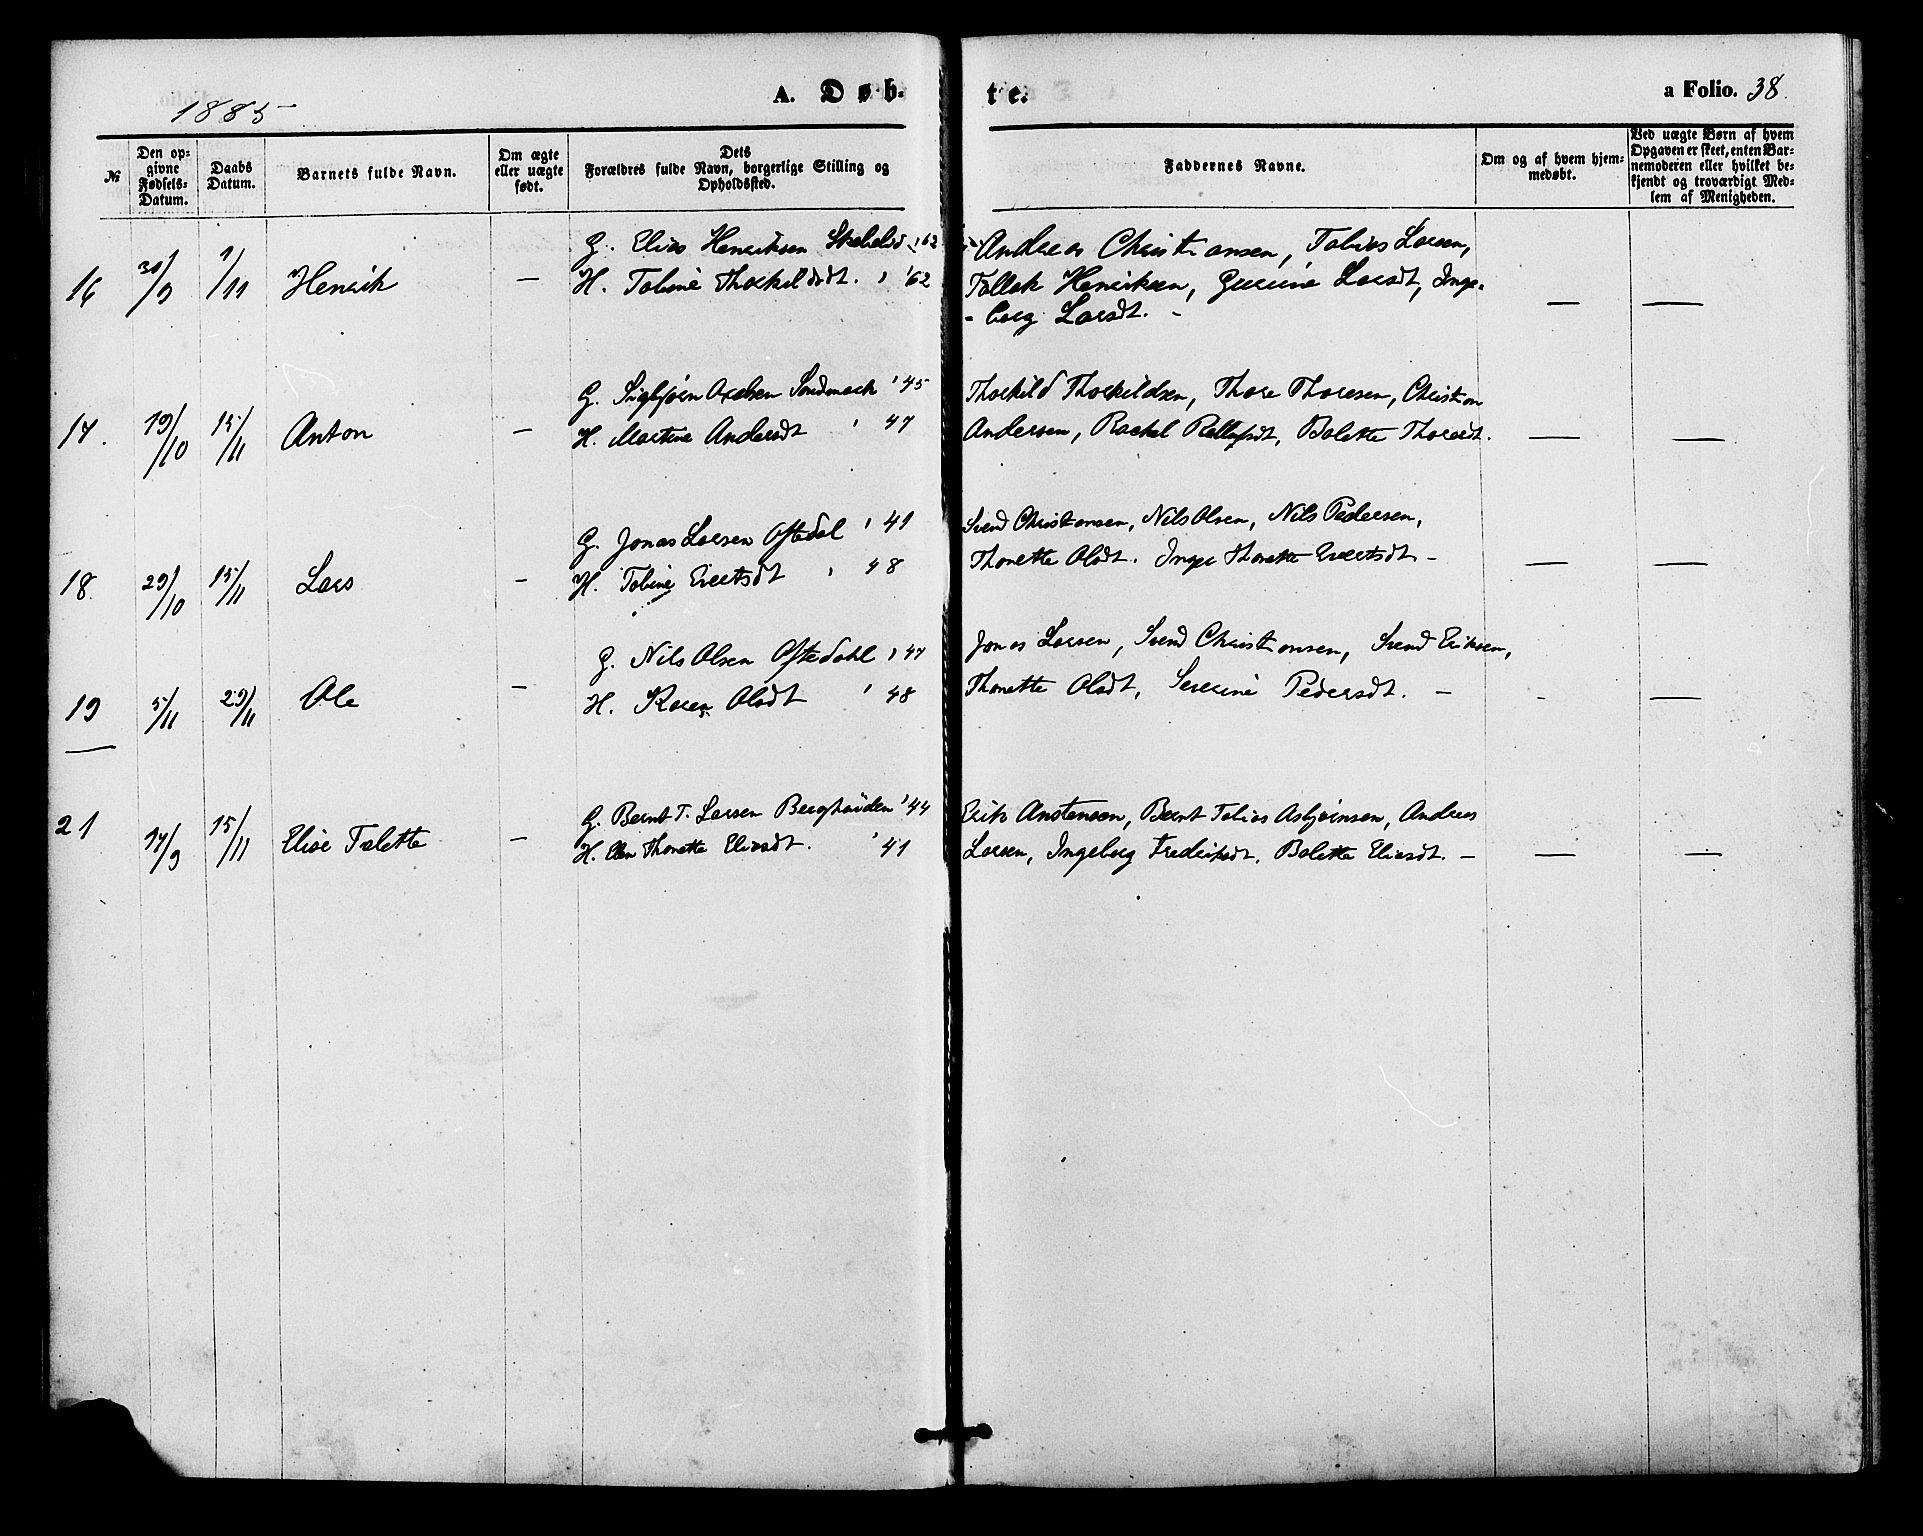 1885
A. Døb-
te.
a Folio. 38.
№
Den op-
givne
Fødsels-
Datum.
Daabs
Datum.
Barnets fulde Navn.
Om ægte
eller uægte
født.
Dets
Forældres fulde Navn, borgerlige Stilling og
Opholdssted.
Faddernes Navne.
Om og af hvem hjem-
medøbt.
Ved uægte Børn af hvem
Opgaven er skeet, enten Bar-
nemoderen eller hvilket be-
kjendt og troværdigt Med-
lem af Menigheden.
16 30/9 1/11 Henrik —
G. Elias Henriksen '62
H. Tobine Thorkildsdt. '62
Andreas Christiansen, Tobias Larsen,
Tollak Henriksen, Gurine Larsdt, Inge-
-borg Larsdt. - — —
17. 19/10 15/11 Anton —
G. Sigbjørn Axelsen Sandmark '45
H. Martine Andersdt ' 47
Thorkild Thorkildsen, Thore Thoresen, Christian
Andersen, Rachel Rollefsdt, Bolette Thoresdt. — —
18. 29/10 15/11 Lars —
G. Jonas Larsen Oftedal '41
H. Tobine Evertsdt ' 48
Svend Christiansen, Nils Olsen, Nils Pedersen,
Thonette Olsdt. Inger Thonette Evertsdt — — —
19 5/11 29/11 Ole —
G. Nils Olsen Oftedahl '47
H. Karen Olsdt ' 48
Jonas Larsen, Svend Christiansen, Svend Eriksen,
Thonette Olsdt, Severine Pedersdt. — - —
21 17/9 15/11 Elise Talette —
G. Bernt T. Larsen '44
H. Elen Thonette Eliasdt. ' 41
Erik Anstensen, Bernt Tobias Asbjørnsen, Andreas
Larsen, Ingeborg Frederiksdt. Bolette Eliasdt. — — —